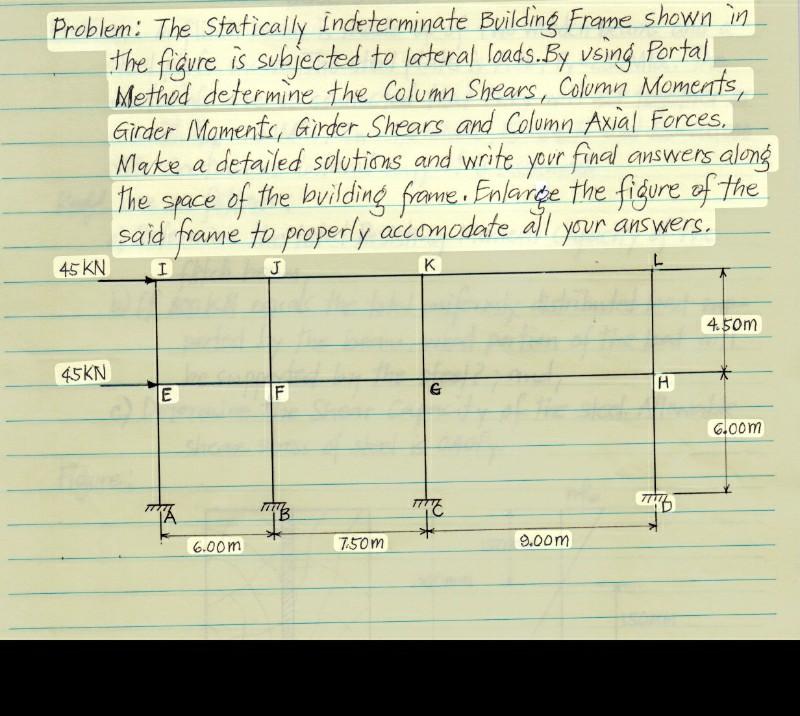 Problem: The Statically Indeterminate Building Frame shown in
the figure is subjected to lateral loads. By using Portal
Method determine the Column Shears, Column Moments,
Girder Moments, Girder Shears and Column Axial Forces.
Make a detailed solutions and write your final answers along
the space of the building frame. Enlarge the figure of the
said frame to properly accomodate all your answers.
45 KN I J K L
4.50m
45KN E F G H
6.00m
A B C D
6.00m 7.50m 9.00m